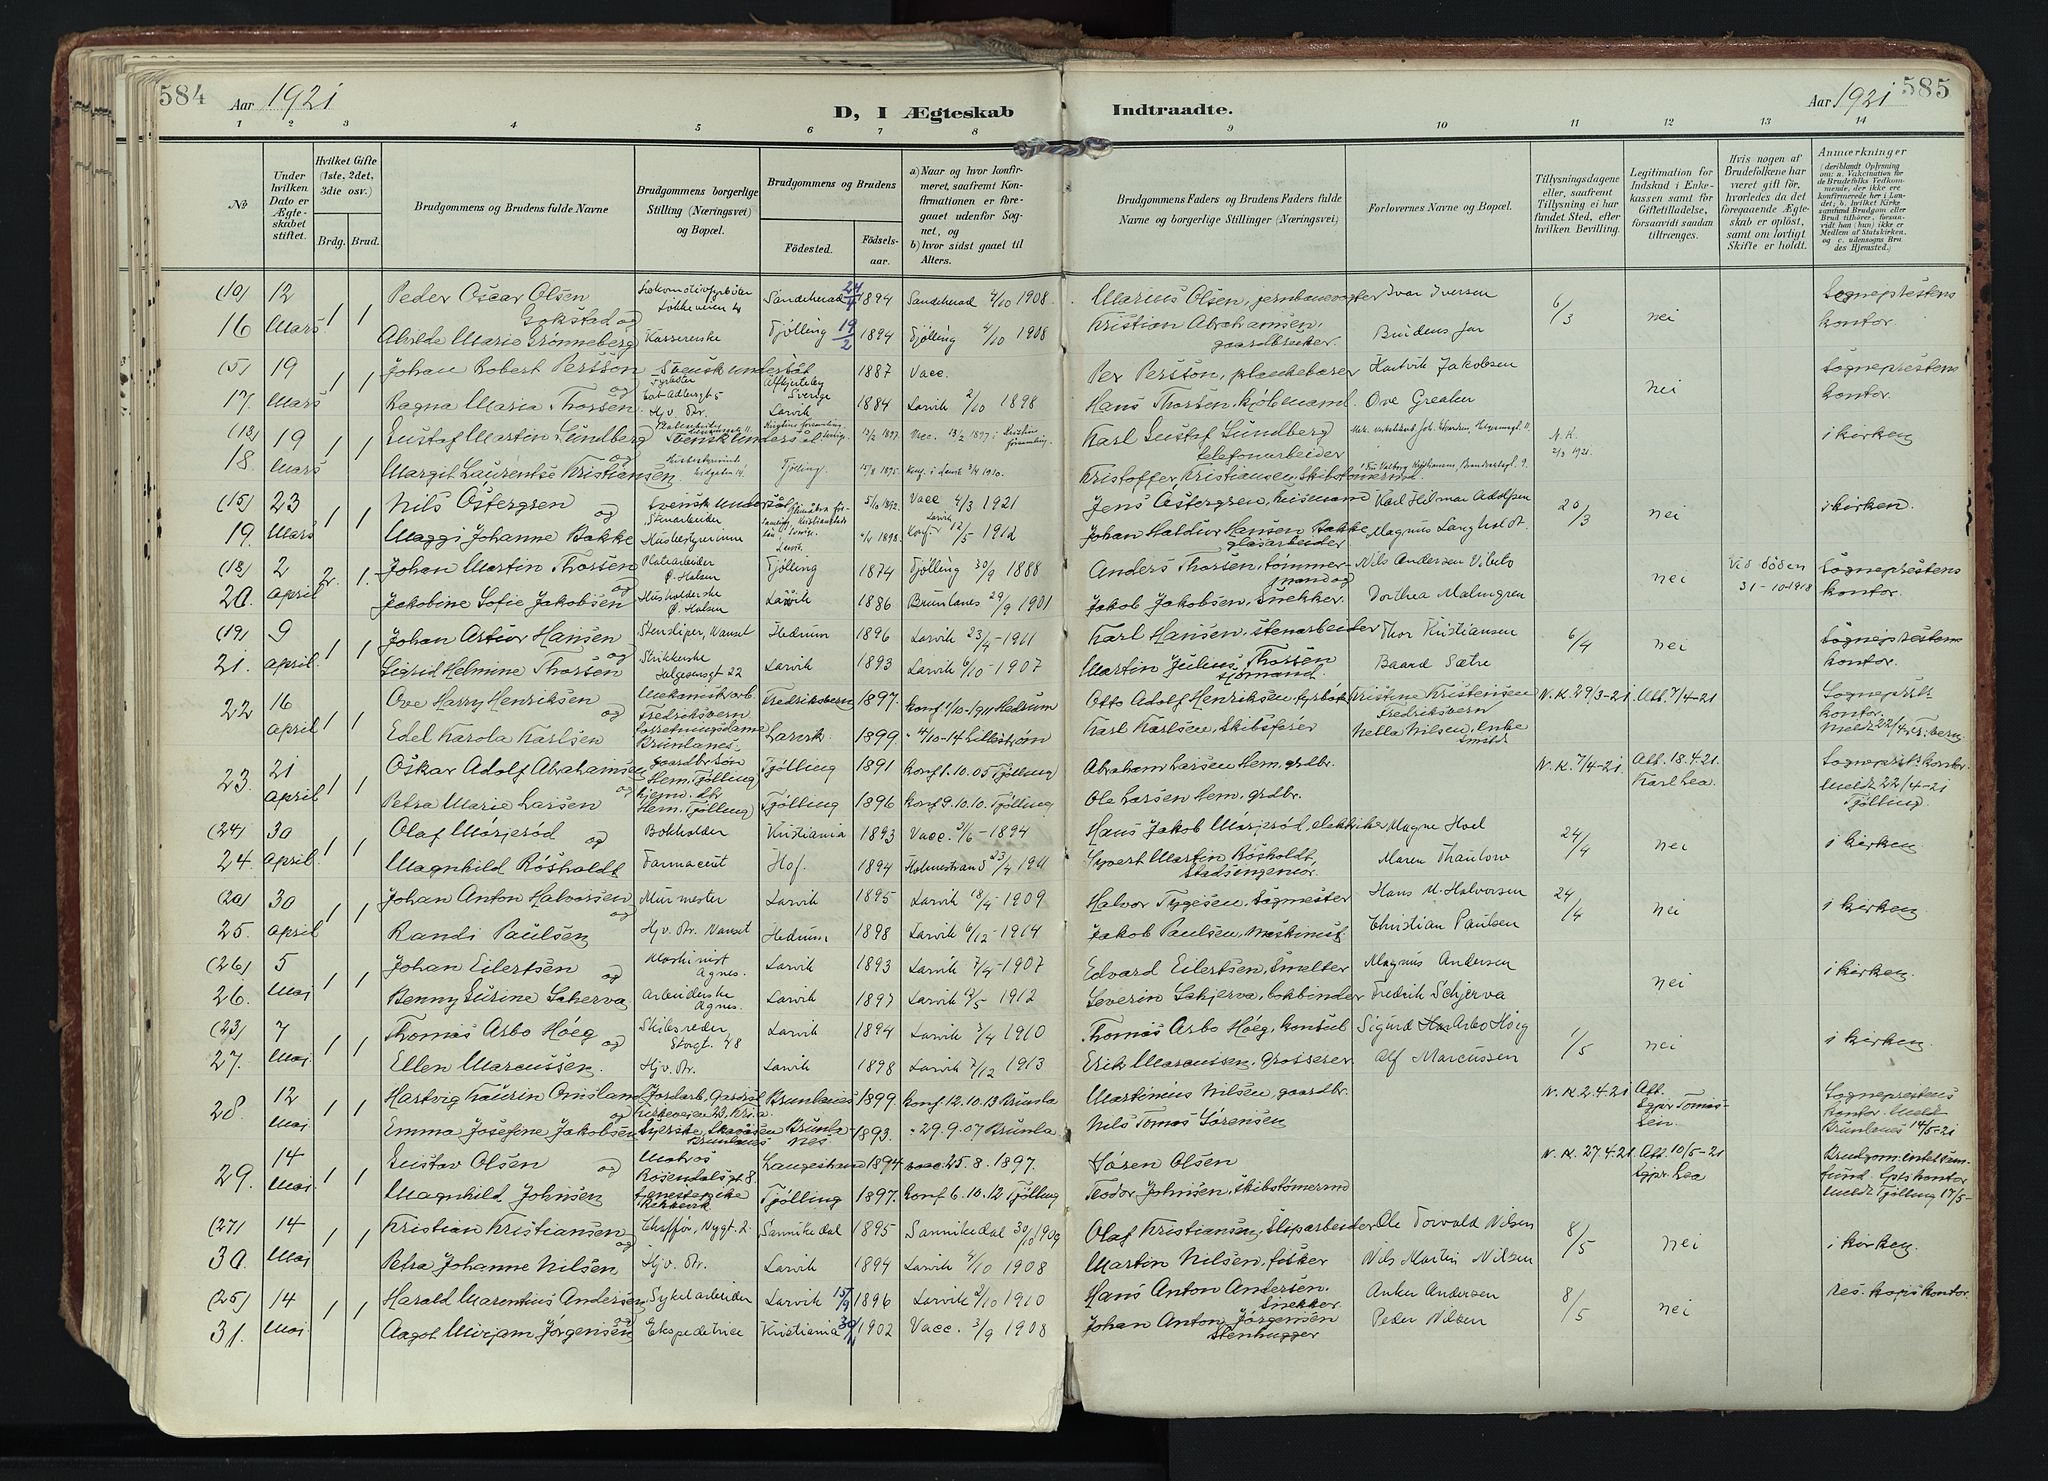 584 Aar 1921 D, I Ægteskab Indtraadte. Aar 1921 585
1 2 3 4 5 6 7 8 9 10 11 12 13 14
No
Under hvilken Dato er Ægteskabet stiftet.
Hvilket Gifte (1ste, 2det, 3die osv.)
Brdg. Brud.
Brudgommens og Brudens fulde Navne
Brudgommens borgerlige Stilling (Næringsvei) og Bopæl.
Brudgommens og Brudens
Födested. Födselsaar.
a) Naar og hvor konfirmeret, saafremt Konfirmationen er foregaaet udenfor Sognet, og
b) hvor sidst gaaet til Alters.
Brudgommens Faders og Brudens Faders fulde Navne og borgerlige Stillinger (Næringsvei)
Forlovernes Navne og Bopæl.
Tillysningsdagene eller, saafremt Tillysning ei har fundet Sted, efter hvilken Bevilling.
Legitimation for Indskud i Enkekassen samt for Giftetilladelse, forsaavidt saadan tiltrænges.
Hvis nogen af Brudefolkene har været gift för, hvorledes da det foregaaende Ægteskab er oplöst, samt om lovligt Skifte er holdt.
Anmærkninger
(10) 12 1 1 Peder Oscar Olsen Gokstad og Sandeherad 24/4 1894 Sandeherad 4/10 1908 Marius Olsen, jernbanevogter Ivar Iversen 6/3 nei Sogneprestens
16 Mars Alvilde Marie Grønneberg Kassererske Tjølling 19/2 1894 Tjølling 4/10 1908 Kristian Abrahamsen, gaardbruker. Brudens far kontor.
(5) 19 1 1 Johan Robert Persson og Svensk undersåt 1887 Vacc. Per Persson, plankebærer Hartvik Jakobsen nei Sogneprestens
17. Mars Ragna Maria Thorsen Hj. v. Br. Larvik 1884 Larvik 2/10 1898 Hans Thorsen, kjøbmand. Ove Greaker kontor.
(13) 19 1 1 Gustaf Martin Lundberg og Svensk undersåt 13/2 1897. Vacc. 13/2 1897 i Karl Gustaf Lundberg telefonarbeider N. K. 2/3 1921. i kirken
18. Mars Margit Laurentse Kristiansen Tjølling. Kristoffer Kristiansen, Skibstømmermd.
(15) 23 1 1 Nils Östergren og Svensk undersåt Stenarbeider Vacc. 4/3 1921 Larvik Jens Östergren, husmand Karl Hilmar Adolfsen 20/3 nei i kirken.
19. Mars Maggi Johanne Bakke Husbestyrerinne Larvik. Konf. 12/5 1912 Johan Haldur Hansen Bakke glasarbeider Magnus Langholdt.
(18) 2 2r. 1. Johan Martin Thorsen og Platearbeider Ø. Halsen Tjølling 1874 Tjølling 30/9 1888 Anders Thorsen, tømmermand og Nils Andersen Vibeto nei Ved døden 31-10-1918 Sogneprestens
20. April Jakobine Sofie Jakobsen Husholderske Ø. Halsen Larvik 1886 Brunlanes 29/9 1901 Jakob Jakobsen, Snekker. Dorthea Malmgren kontor.
(19) 9 1 1 Johan Artur Hansen og Stensliper, Nanset Hedrum 1896 Larvik 23/4-1911 Karl Hansen, stenarbeider Thor Kristiansen 6/4 nei Sogneprestens
21. April. Sigrid Helmine Thorsen Strikkerske Helgesensgt 22 Larvik 1893 Larvik 6/10-1907 Martin Julius Thorsen sjømand. Baard Sætre kontor.
22 16 april 1 1 Ove Harry Henriksen og Mekanisk arb. Fredriksvern Fredriksvern 1897. Konf 1/10-1911 Hedrum Otto Adolf Henriksen, fyrbøter Kristine Kristensen Fredriksvern N. K. 29/3-21 Att. 7/4-21 Sogneprstk kontor.
Edel Karola Karlsen Forretningsdame Brunlanes. Larvik. 1899. " 4/10-14 Lillestrøm Karl Karlsen, Skibsfører Nella Nilsen, Enke Meldt 22/4 Fr:vern
23. 21 April 1 1 Oskar Adolf Abrahamsen og Gaardbr søn Hem, Tjølling Tjølling 1891 Konf 1.10.05 Tjølling Abraham Larsen Hem, grdbr. N. K. 7/4-21 Att. 18.4.21. Karl Lea. Sogneprst: kontor.
Petra Marie Larsen Hjemv. dtr Hem, Tjølling Tjølling 1896 Konf 9.10.10. Tjølling Ole Larsen Hem, grdbr. Meldt 22/4-21 Tjølling.
(24) 30 1 1 Olaf Mørjerød og Bokholder Kristiania 1893 Vacc. 2/6-1894 Hans Jakob Mørjerød, elektriker Magne Hoel 24/4 nei i kirken
24. April. Magnhild Røsholdt Farmaceut Hof. 1894 Holmestrand 23/4 1911 Syvert Martin Røsholdt, Stadsingeniør. Maren Thaulow
(20) 30 1 1 Johan Anton Halvorsen og Murmester Larvik 1895 Larvik 18/4-1909 Halvor Tygesen, Sagmester Hans M. Halvorsen 24/4 nei i kirken
25. April Randi Paulsen Hj. v. Br. Nanset Hedrum 1898 Larvik 6/12-1914 Jakob Paulsen, Maskinist Christian Paulsen
(26) 5 1 1 Johan Eilertsen og Maskinist Agnes. Larvik 1893 Larvik 7/4-1907 Edvard Eilertsen, Smelter Magnus Andersen nei i kirken.
26. Mai Benny Surine Schjerva Arbeiderske Agnes. Larvik 1897 Larvik 9/5-1912 Severin Schjerva, bokbinder Fredrik Schjerva
(23) 7 1 1 Thomas Arbo Höeg og Skibsreder, Storgt. 48 Larvik 1894 Larvik 3/4 1910 Thomas Arbo Höeg, konsul Sigurd Arbo Höeg 1/5 nei i kirken
27. Mai. Ellen Marcussen. Hj. v. Br. Larvik 1898 Larvik 7/12 1913 Erik Marcussen, Grosserer Alf Marcussen
28. 12 Mai. 1 1 Hartvig Laurin Omsland og Jordarb. Kirkeveien 23, Kr.a. Brunlanes 1899. Konf 12.10.13 Brunla Martinius Nilsen, gaardbr. N. K. 2.4.21 Att. Sgpr Tomassen. Sogneprestens
Emma Josefine Jakobsen Syerske, Brunlanes 1893. " 29.9.07 Brunla Nils Tomas Sørensen kontor. Meldt Brunlanes 14/5-21
29. 14 Mai. 1 1 Gustav Olsen og Matros Rosendalsgt 8. Langestrand 1894 vacc. 25.8.1897. Søren Olsen N. K. 27.4.21 Att. 10/5-21 Sgpr. Lea
Magnhild Johnsen Tjølling 1897. Konf 6.10.12 Tjølling Teodor Johnsen, skibstømermd Meldt Tjølling 17/5-
(27) 14 1 1 Kristian Kristiansen og Chaffør, Nygt. 2. Sannikedal 1895 Sannikedal 30/10 1909 Olaf Kristiansen, Sliparbeider Ole Torvald Nilsen 8/5 nei i kirken.
30. Mai Petra Johanne Nilsen Hj. v. Br. Larvik 1894 Larvik 4/10 1908 Martin Nilsen, fisker Nils Martin Nilsen
(25) 14 1 1 Harald Marentius Andersen og Sykelarbeider Larvik 15/9 1896 Larvik 2/10 1910 Hans Anton Andersen, Snekker. Anker Andersen 8/5 nei res. kap's kontor.
31. Mai. Aagot Mirjam Jørgensen Ekspeditrice Kristiania 30/1 1902 Vacc. 3/9 1908 Johan Anton Jörgensen Stenhugger Peder Nilsen